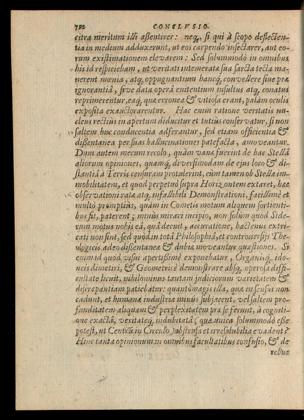 792 CONCLVSIO.
citra meritum illi assentirer: neq; si qui à scopo deflecten-
tia in medium adduxerunt, ut eos carpendo insectarer, aut eo-
rum existimationem elevarem: Sed solummodò in omnibus
hîc id respiciebam, ut veritati intemerata sua sarta tecta ma-
nerent mœnia, atq; oppugnantium hancq; convellere sive præ
ignorantiâ, sive data operâ enitentium insultus atq; conatus
reprimerentur, eaq; quæ erronea & vitiosa erant, palàm oculis
exposita exauctorarentur. Hac enim ratione veritatis nu-
cleus rectiùs in apertum diducitur et tutiùs conservatur, si non
saltem huc conducentia adferantur, sed etiam officientia &
dissentanea per suas hallucinationes patefacta, amoveantur.
Dum autem mecum recolo, quàm vana fuerint de hac Stella
aliorum opiniones, quamq; diversimodam de ejus loco & di-
stantiâ à Terris censuram protulerint, cùm tamen ob Stellæ im-
mobilitatem, et quod perpetuò supra Horizontem extaret, hæc
observationi rata atq; infallibili Demonstrationi, facillimè et
multò promptiùs, quàm in Cometis motum aliquem sortienti-
bus fit, pateret; minùs mirari incipio, non solùm quod Side-
rum motus nobis ea, quâ decuit, accuratione, hactenus extri-
cati non sint, sed quod in tota Philosophia, et controversiis The-
ologicis adeò dissentaneæ & dubiæ moveantur quæstiones. Si
enim id quod visui apertissimè exponebatur, Organisq; ido-
neis dimetiri, & Geometricè demonstrare absq; operosa diffi-
cultate licuit, nihilominus tantam judiciorum varietatem &
discrepantiam patiebatur: quantò magis illa, quæ in sensus non
cadunt, et humanæ industriæ minùs subjacent, vel saltem pro-
funditatem aliquam & perplexitatem præ se ferunt, à cogniti-
one exactâ, veritateq; indubitatâ (quæ unica solummodò esse
potest, ut Centrum in Circulo) abstrusa et irresolubilia evadent?
Hinc tanta opinionum in omnibus facultatibus confusio, & de